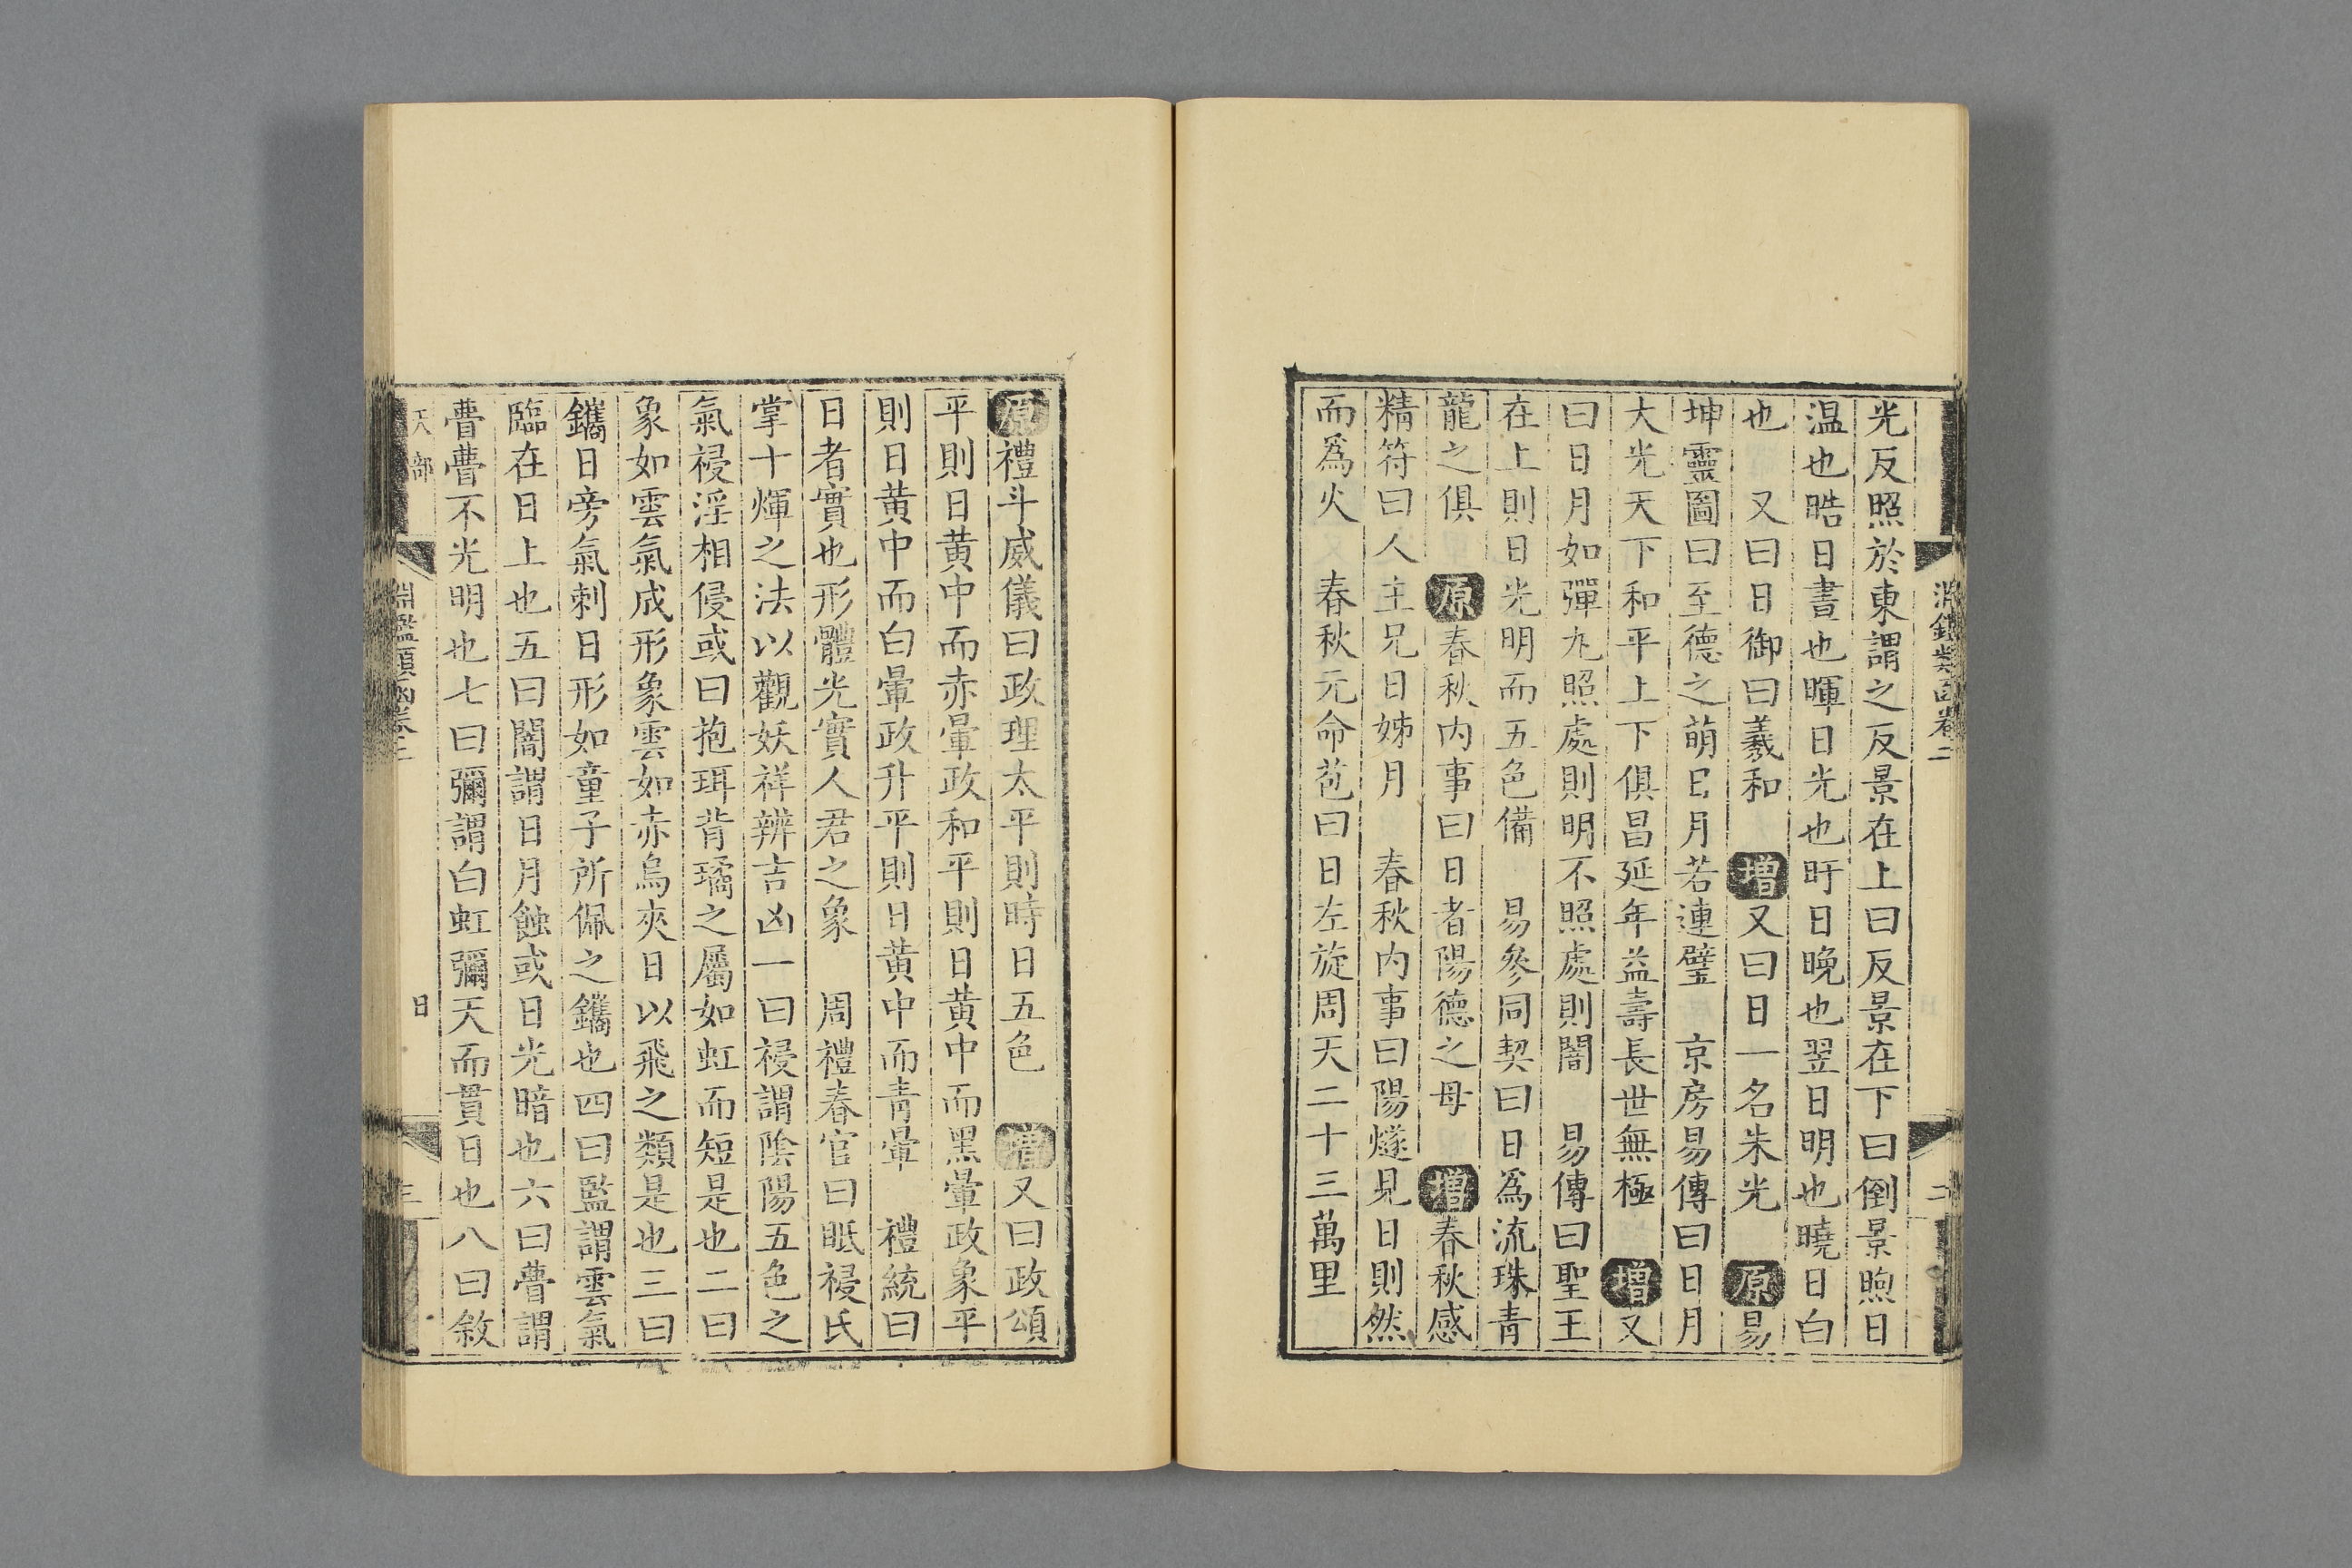 淵鑑類函卷二
二
光反照於東謂之反景在上曰反景在下曰倒景煦日
温也晧日晝也暉日光也旴日晚也翌日明也曉日白
也　又曰日御曰羲和　增又曰日一名朱光　原易
坤靈圖曰至德之萌日月若連璧　京房易傳曰日月
大光天下和平上下俱昌延年益壽長世無極　增又
曰日月如彈丸照處則明不照處則闇　易傳曰聖王
在上則日光明而五色備　易參同契曰日爲流珠青
龍之俱　原春秋内事曰日者陽德之母　增春秋感
精符曰人主兄日姊月　春秋内事曰陽燧見日則然
而爲火　春秋元命苞曰日左旋周天二十三萬里
原禮斗威儀曰政理太平則時日五色　增又曰政頌
平則日黄中而赤暈政和平則日黄中而黑暈政象平
則日黄中而白暈政升平則日黄中而青暈　禮統曰
日者實也形體光實人君之象　周禮春官曰眡祲氏
掌十煇之法以觀妖祥辨吉凶一曰祲謂陰陽五色之
氣祲淫相侵或曰抱珥背璚之屬如虹而短是也二曰
象如雲氣成形象雲如赤烏夾日以飛之類是也三曰
鑴日旁氣刺日形如童子所佩之鑴也四曰監謂雲氣
臨在日上也五曰闇謂日月蝕或日光暗也六曰瞢謂
瞢瞢不光明也七曰彌謂白虹彌天而貫日也八曰敘
天部　淵鑑類函卷二　日　三